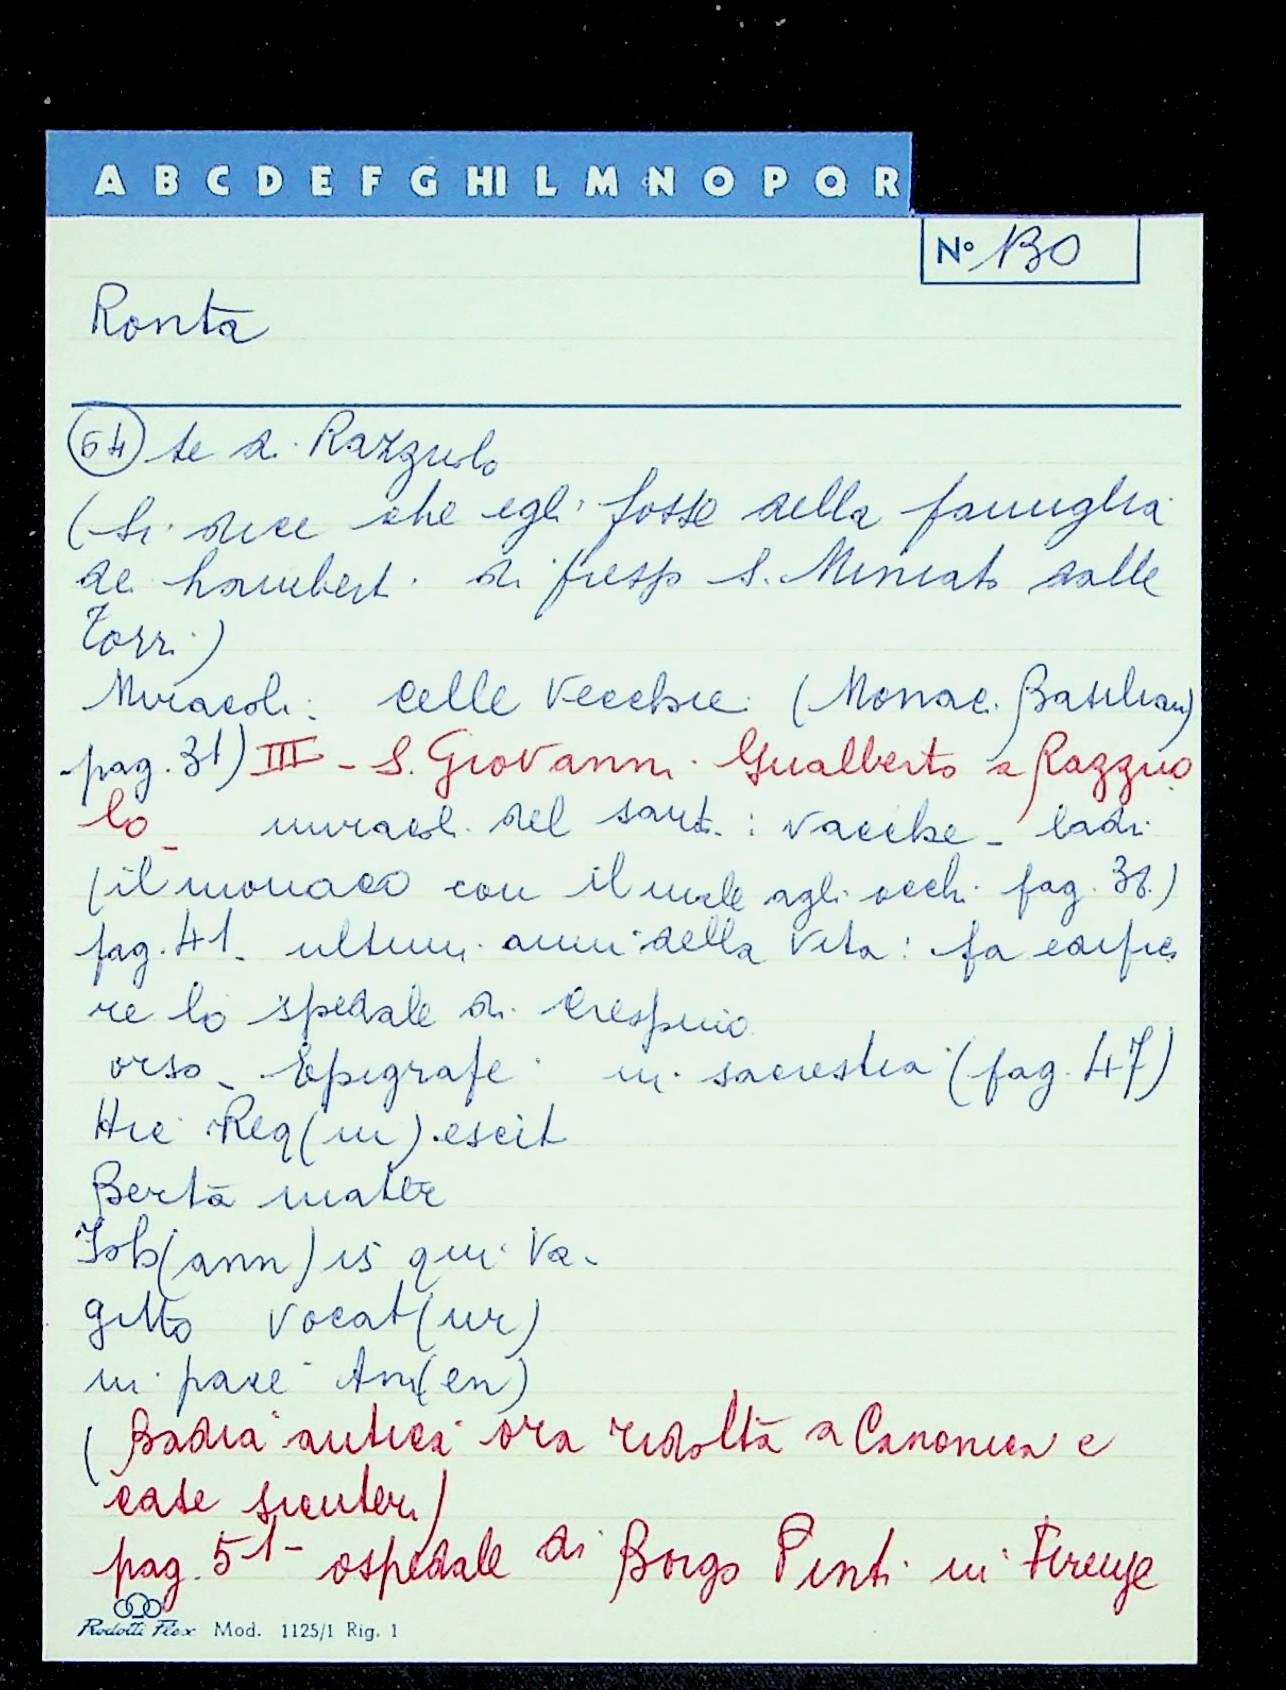 A B C D E F G HI L M N O P Q R
N° 130
Ronta
64 te di Razzuolo
(Si dice che egli fosse della famiglia
de Lambert. di presso S. Miniato dalle
Torri)
Miracoli: Celle Vecchie (Monac. Basilian)
pag. 31) III - S. Giovanni Gualberto a Razzuo
lo - miracoli del santo: vacche - ladri
(il monaco con il male agli occhi pag. 38.)
pag. 41 - ultimi anni della vita: fa edifica
re lo spedale di Crespino
orso - Epigrafe in sacrestia (pag. 47)
Hic Req(ui)escit
Berta mater
Joh(ann)is qui Va-
gitto vocat(ur)
in pace Am(en)
(Badia antica ora ridotta a Canonica e
case
pag. 51 - ospedale di Borgo Pinti in Firenze
Rodotti Flex Mod. 1125/1 Rig. 1